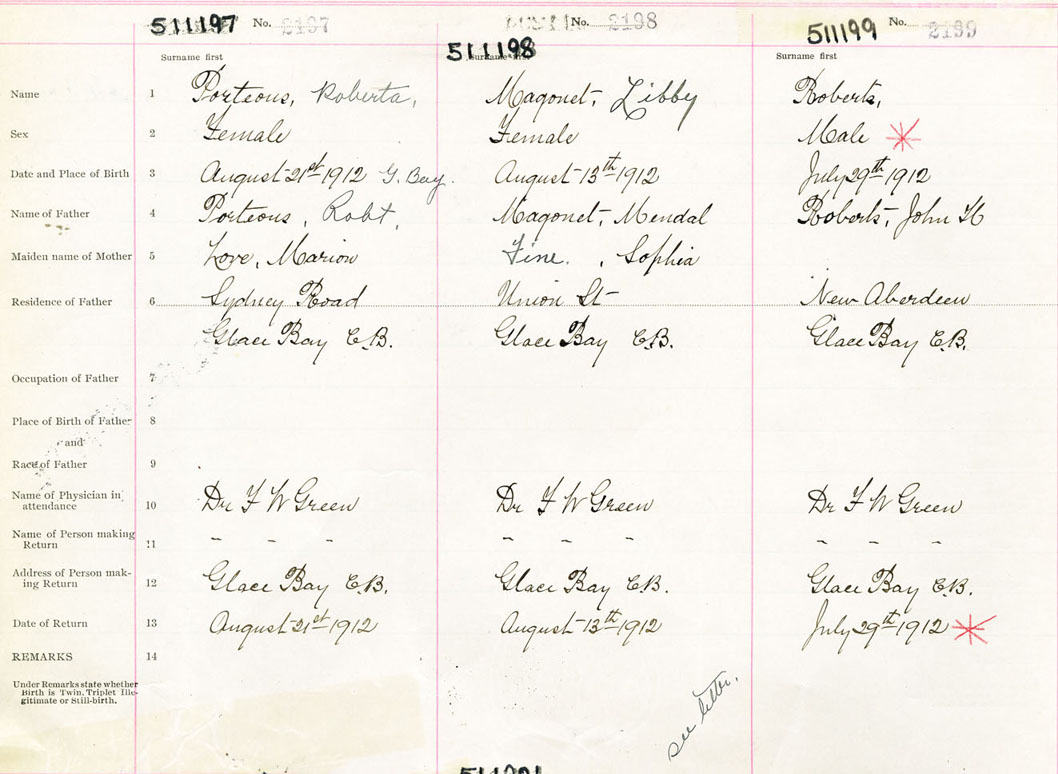 511197 No. 2197 No. 2198 511199 No. 2199
511198
Surname first Surname first Surname first
Name 1 Porteous, Roberta, Magonet, Libby Roberts,
Sex 2 Female Female Male
Date and Place of Birth 3 August 21st 1912 G. Bay. August 13th 1912 July 29th 1912
Name of Father 4 Porteous, Robt, Magonet, Mendal Roberts, John H
Maiden name of Mother 5 Love, Marion Fine. , Sophia
Residence of Father 6 Sydney Road Union St New Aberdeen
Glace Bay C.B. Glace Bay C.B. Glace Bay C.B.
Occupation of Father 7
Place of Birth of Father 8
and
Race of Father 9
Name of Physician in
attendance 10 Dr F W Green Dr F W Green Dr F W Green
Name of Person making
Return 11 - - - - - - - - -
Address of Person mak-
ing Return 12 Glace Bay C.B. Glace Bay C.B. Glace Bay C.B.
Date of Return 13 August 21st 1912 August 13th 1912 July 29th 1912
REMARKS 14
Under Remarks state whether
Birth is Twin, Triplet Ille-
gitimate or Still-birth.
see letter.